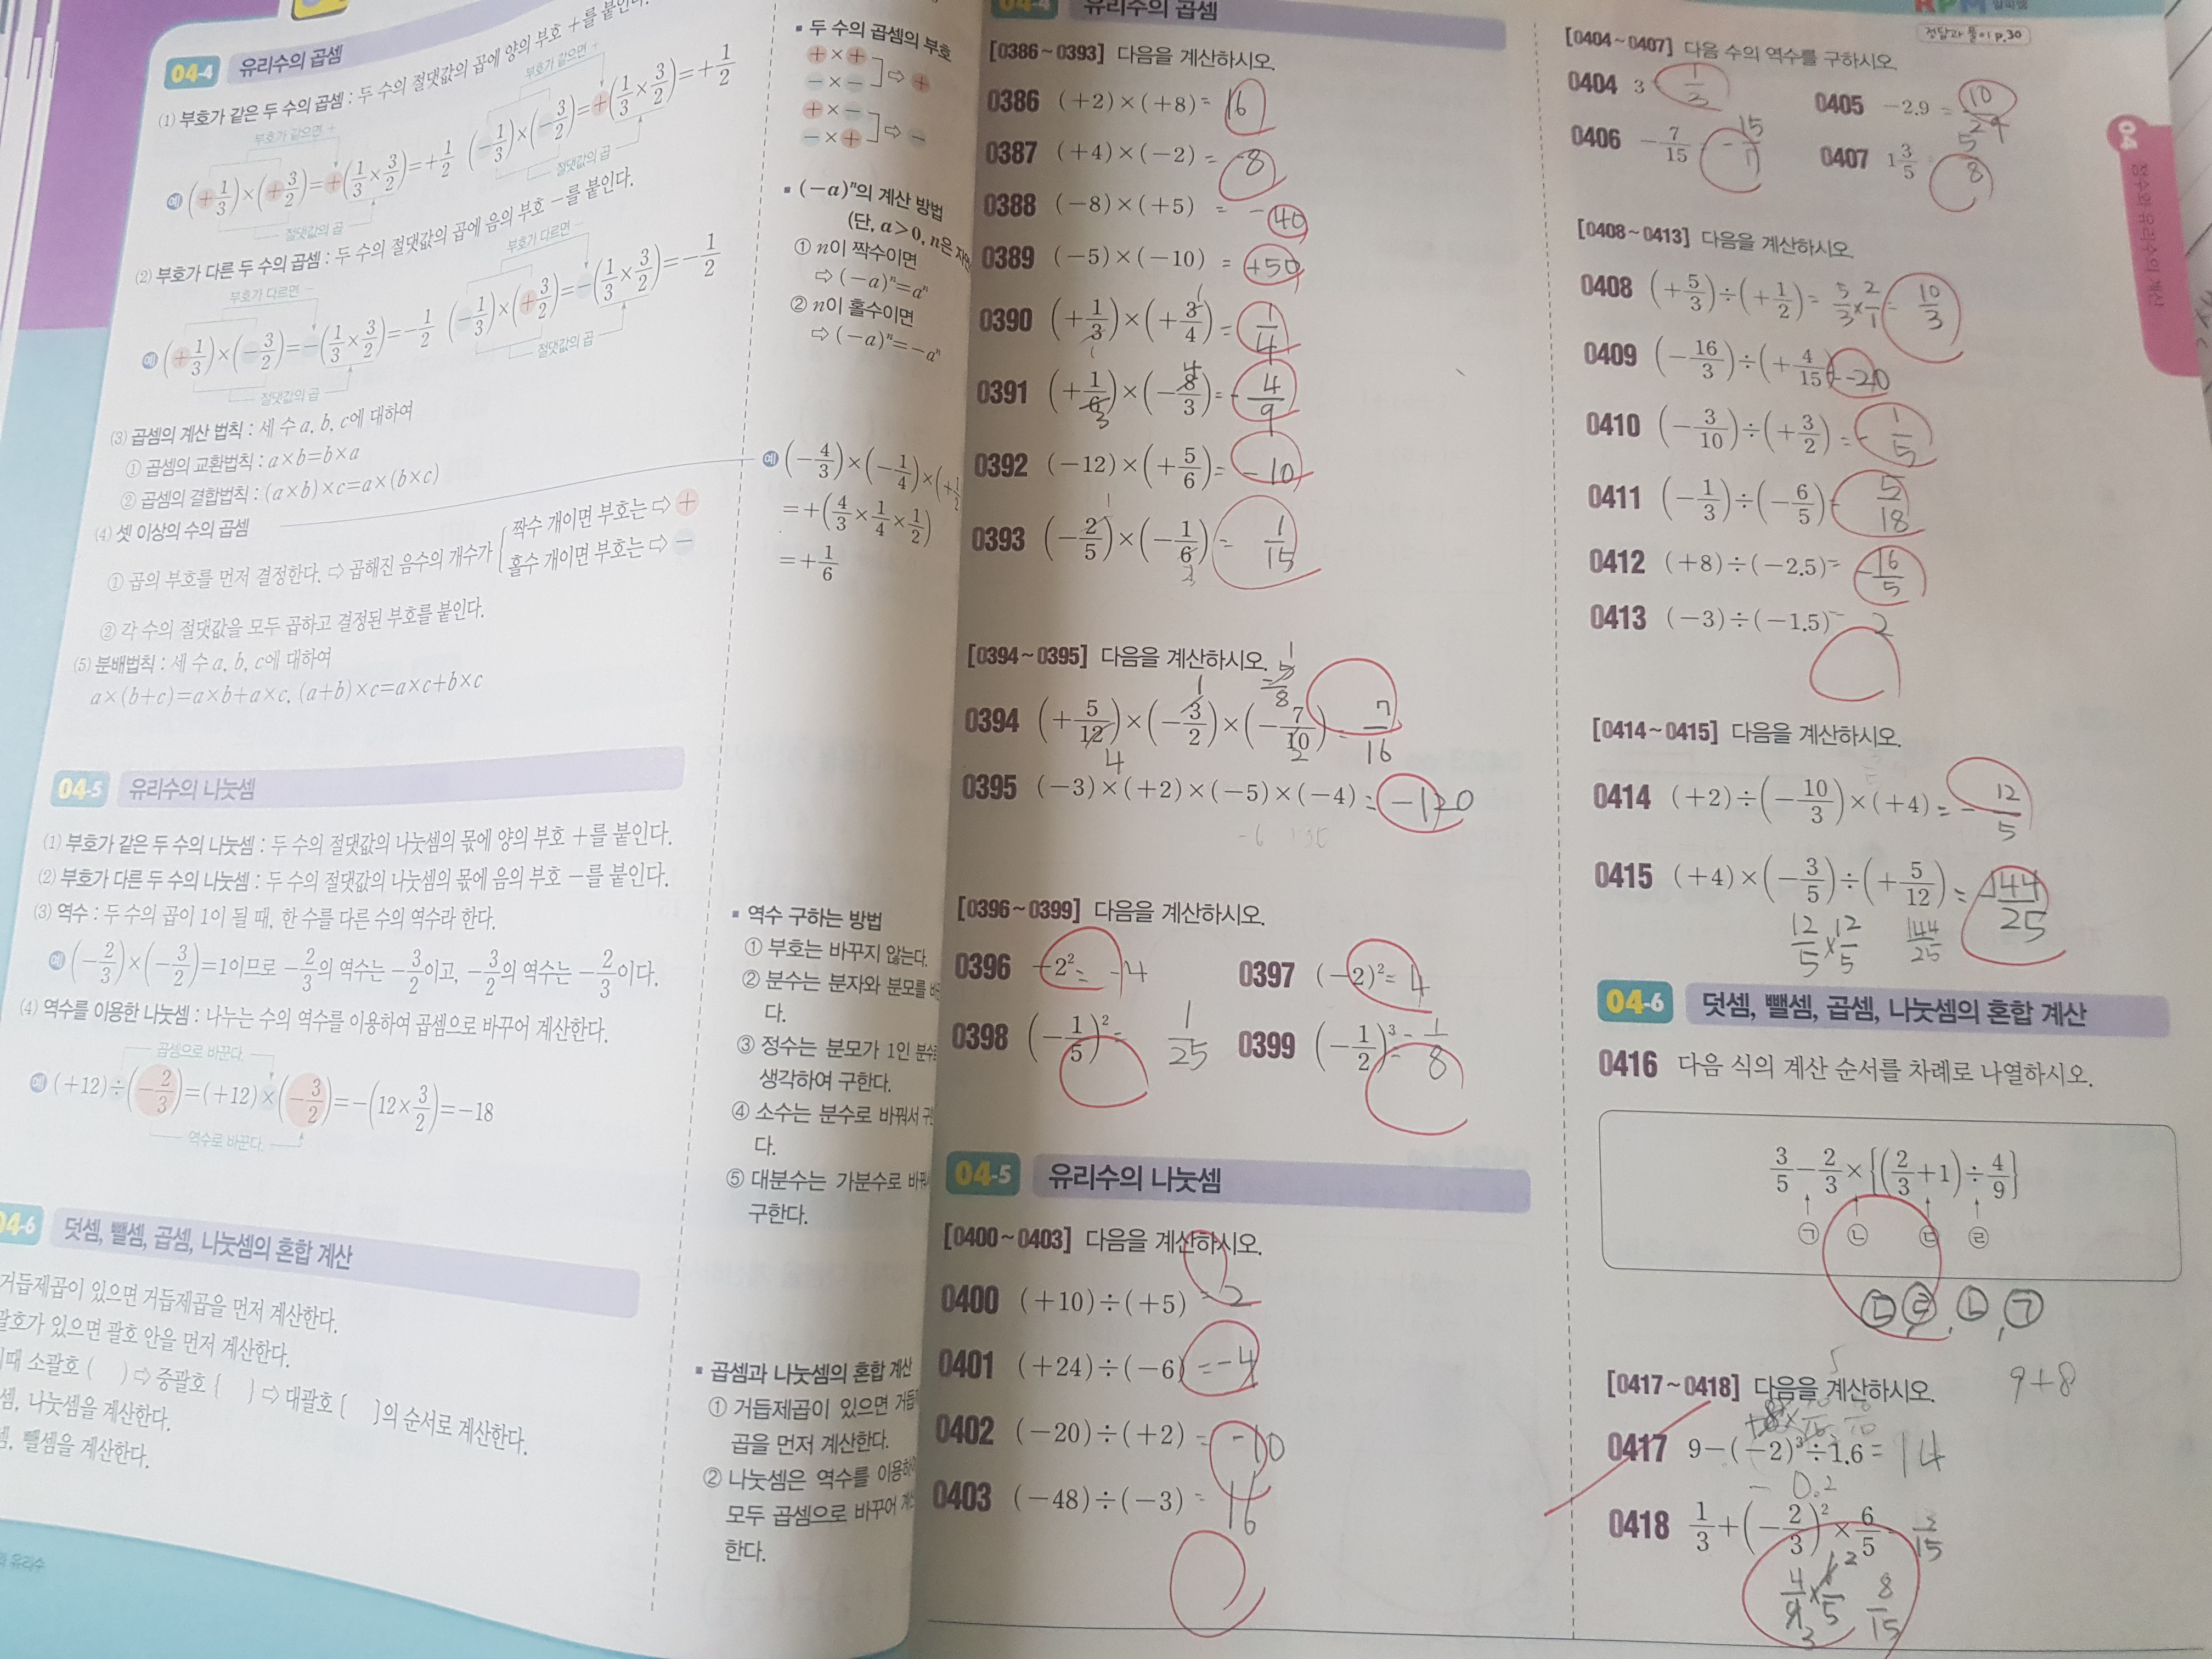 04-4 유리수의 곱셈
(1) 부호가 같은 두 수의 곱셈 : 두 수의 절댓값의 곱에 양의 부호 +를 붙인다.
부호가 같으면 +
부호가 같으면 +
예 (+1/3)×(+3/2)=+(1/3×3/2)=+1/2 (-1/3)×(-3/2)=+(1/3×3/2)=+1/2
절댓값의 곱
절댓값의 곱
(2) 부호가 다른 두 수의 곱셈 : 두 수의 절댓값의 곱에 음의 부호 -를 붙인다.
부호가 다르면 -
부호가 다르면 -
예 (+1/3)×(-3/2)=-(1/3×3/2)=-1/2 (-1/3)×(+3/2)=-(1/3×3/2)=-1/2
절댓값의 곱
절댓값의 곱
(3) 곱셈의 계산 법칙 : 세 수 a, b, c에 대하여
① 곱셈의 교환법칙 : a×b=b×a
② 곱셈의 결합법칙 : (a×b)×c=a×(b×c)
(4) 셋 이상의 수의 곱셈
① 곱의 부호를 먼저 결정한다. ⇨ 곱해진 음수의 개수가
짝수 개이면 부호는 ⇨ +
홀수 개이면 부호는 ⇨ -
② 각 수의 절댓값을 모두 곱하고 결정된 부호를 붙인다.
(5) 분배법칙 : 세 수 a, b, c에 대하여
a×(b+c)=a×b+a×c, (a+b)×c=a×c+b×c
04-5 유리수의 나눗셈
(1) 부호가 같은 두 수의 나눗셈 : 두 수의 절댓값의 나눗셈의 몫에 양의 부호 +를 붙인다.
(2) 부호가 다른 두 수의 나눗셈 : 두 수의 절댓값의 나눗셈의 몫에 음의 부호 -를 붙인다.
(3) 역수 : 두 수의 곱이 1이 될 때, 한 수를 다른 수의 역수라 한다.
예 (-2/3)×(-3/2)=1이므로 -2/3의 역수는 -3/2이고, -3/2의 역수는 -2/3이다.
(4) 역수를 이용한 나눗셈 : 나누는 수의 역수를 이용하여 곱셈으로 바꾸어 계산한다.
곱셈으로 바꾼다.
예 (+12)÷(-2/3)=(+12)×(-3/2)=-(12×3/2)=-18
역수로 바꾼다.
04-6 덧셈, 뺄셈, 곱셈, 나눗셈의 혼합 계산
거듭제곱이 있으면 거듭제곱을 먼저 계산한다.
괄호가 있으면 괄호 안을 먼저 계산한다.
이때 소괄호 ( ) ⇨ 중괄호 { } ⇨ 대괄호 [ ]의 순서로 계산한다.
셈, 나눗셈을 계산한다.
셈, 뺄셈을 계산한다.
유리수
▪ 두 수의 곱셈의 부호
+ × +
- × - ⇨ +
+ × -
- × + ⇨ -
▪ (-a)ⁿ의 계산 방법
(단, a>0, n은
① n이 짝수이면
⇨ (-a)ⁿ=aⁿ
② n이 홀수이면
⇨ (-a)ⁿ=-aⁿ
예 (-4/3)×(-1/4)×(+1/2
=+(4/3×1/4×1/2)
=+1/6
▪ 역수 구하는 방법
① 부호는 바꾸지 않는다.
② 분수는 분자와 분모를
다.
③ 정수는 분모가 1인 분수
생각하여 구한다.
④ 소수는 분수로 바꿔서
다.
⑤ 대분수는 가분수로
구한다.
▪ 곱셈과 나눗셈의 혼합 계산
① 거듭제곱이 있으면
곱을 먼저 계산한다.
② 나눗셈은 역수를
모두 곱셈으로 바꾸어
한다.
04-4 유리수의 곱셈
[0386~0393] 다음을 계산하시오.
0386 (+2)×(+8)= 16
0387 (+4)×(-2)= -8
0388 (-8)×(+5) = -40
0389 (-5)×(-10) = +50
0390 (+1/3)×(+3/4)= 1/4
0391 (+1/6)×(-8/3)= -4/9
0392 (-12)×(+5/6)= -10
0393 (-2/5)×(-1/6)= 1/15
[0394~0395] 다음을 계산하시오.
0394 (+5/12)×(-3/2)×(-7/10)= 7/16
0395 (-3)×(+2)×(-5)×(-4)= -120
[0396~0399] 다음을 계산하시오.
0396 -2²= -4
0397 (-2)²= 4
0398 (-1/5)²= 1/25
0399 (-1/2)³= -1/8
04-5 유리수의 나눗셈
[0400~0403] 다음을 계산하시오.
0400 (+10)÷(+5) = 2
0401 (+24)÷(-6) = -4
0402 (-20)÷(+2) = -10
0403 (-48)÷(-3) = 16
RPM 알피엠
정답과 풀이 p.30
[0404~0407] 다음 수의 역수를 구하시오.
0404 3 1/3
0405 -2.9 = 10/29
0406 -7/15
0407 1 3/5 5/8
[0408~0413] 다음을 계산하시오.
0408 (+5/3)÷(+1/2)= 5/3×2/1= 10/3
0409 (-16/3)÷(+4/15)= -20
0410 (-3/10)÷(+3/2)= -1/5
0411 (-1/3)÷(-6/5)= 5/18
0412 (+8)÷(-2.5)= -16/5
0413 (-3)÷(-1.5)= 2
[0414~0415] 다음을 계산하시오.
0414 (+2)÷(-10/3)×(+4)= -12/5
0415 (+4)×(-3/5)÷(+5/12)= -144/25
12/5×12/5 144/25
04-6 덧셈, 뺄셈, 곱셈, 나눗셈의 혼합 계산
0416 다음 식의 계산 순서를 차례로 나열하시오.
3/5-2/3×{(2/3+1)÷4/9}
㉠ ㉡ ㉢ ㉣
㉢ ㉣, ㉡, ㉠
[0417~0418] 다음을 계산하시오.
9+8
0417 9-(-2)³÷1.6= 14
0.2
0418 1/3+(-2/3)²×6/5
4/9×6/5 8/15
04
정수와 유리수의 계산